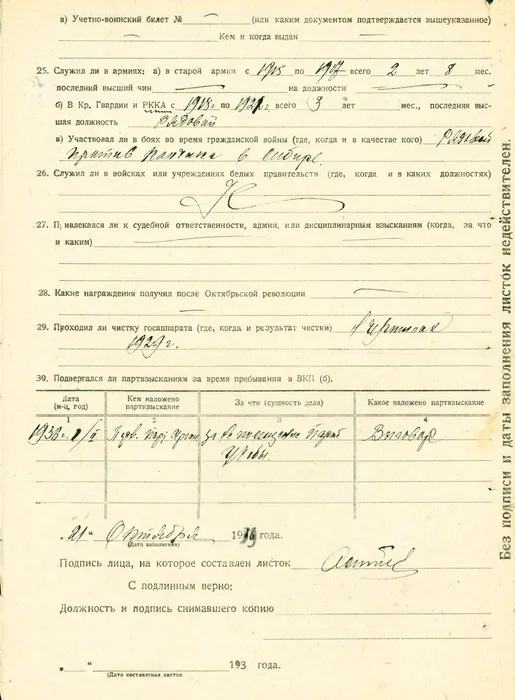 в) Учетно-воинский билет № — (или каким документом подтверждается вышеуказанное)
— Кем и когда выдан —
25. Служил ли в армиях: а) в старой армии с 1915 по 1917 всего 2 лет 8 мес.
последний высший чин — на должности —
б) В Кр. Гвардии и РККА с 1918 г по 1921 г. всего 3 лет мес., последняя выс-
шая должность рядовай
в) Участвовал ли в боях во время гражданской войны (где, когда и в качестве кого) рядовой
против Колчака в Сибире.
26. Служил ли в войсках или учреждениях белых правительств (где, когда и в каких должностях)
27. Привлекался ли к судебной ответственности, админ. или дисциплинарным взысканиям (когда, за что
и каким) —
28. Какие награждения получил после Октябрьской революции —
29. Проходил ли чистку госаппарата (где, когда и результат чистки)
1929 г.
30. Подвергался ли партвзысканиям за время пребывания в ВКП (б).
Дата
(м-ц, год) Кем наложено
партвзыскание За что (существо дела) Какое наложено партвзыскание
1 2 3 4
1938 г. Перв. Парт. Орган за не посещение Парт Выговар
Учебы.
„21“ Октября 1939 года.
(Дата заполнения)
Подпись лица, на которое составлен листок
С подлинным верно:
Должность и подпись снимавшего копию
„ “ 193 года.
(Дата составления листка
Без подписи и даты заполнения листок недействителен.